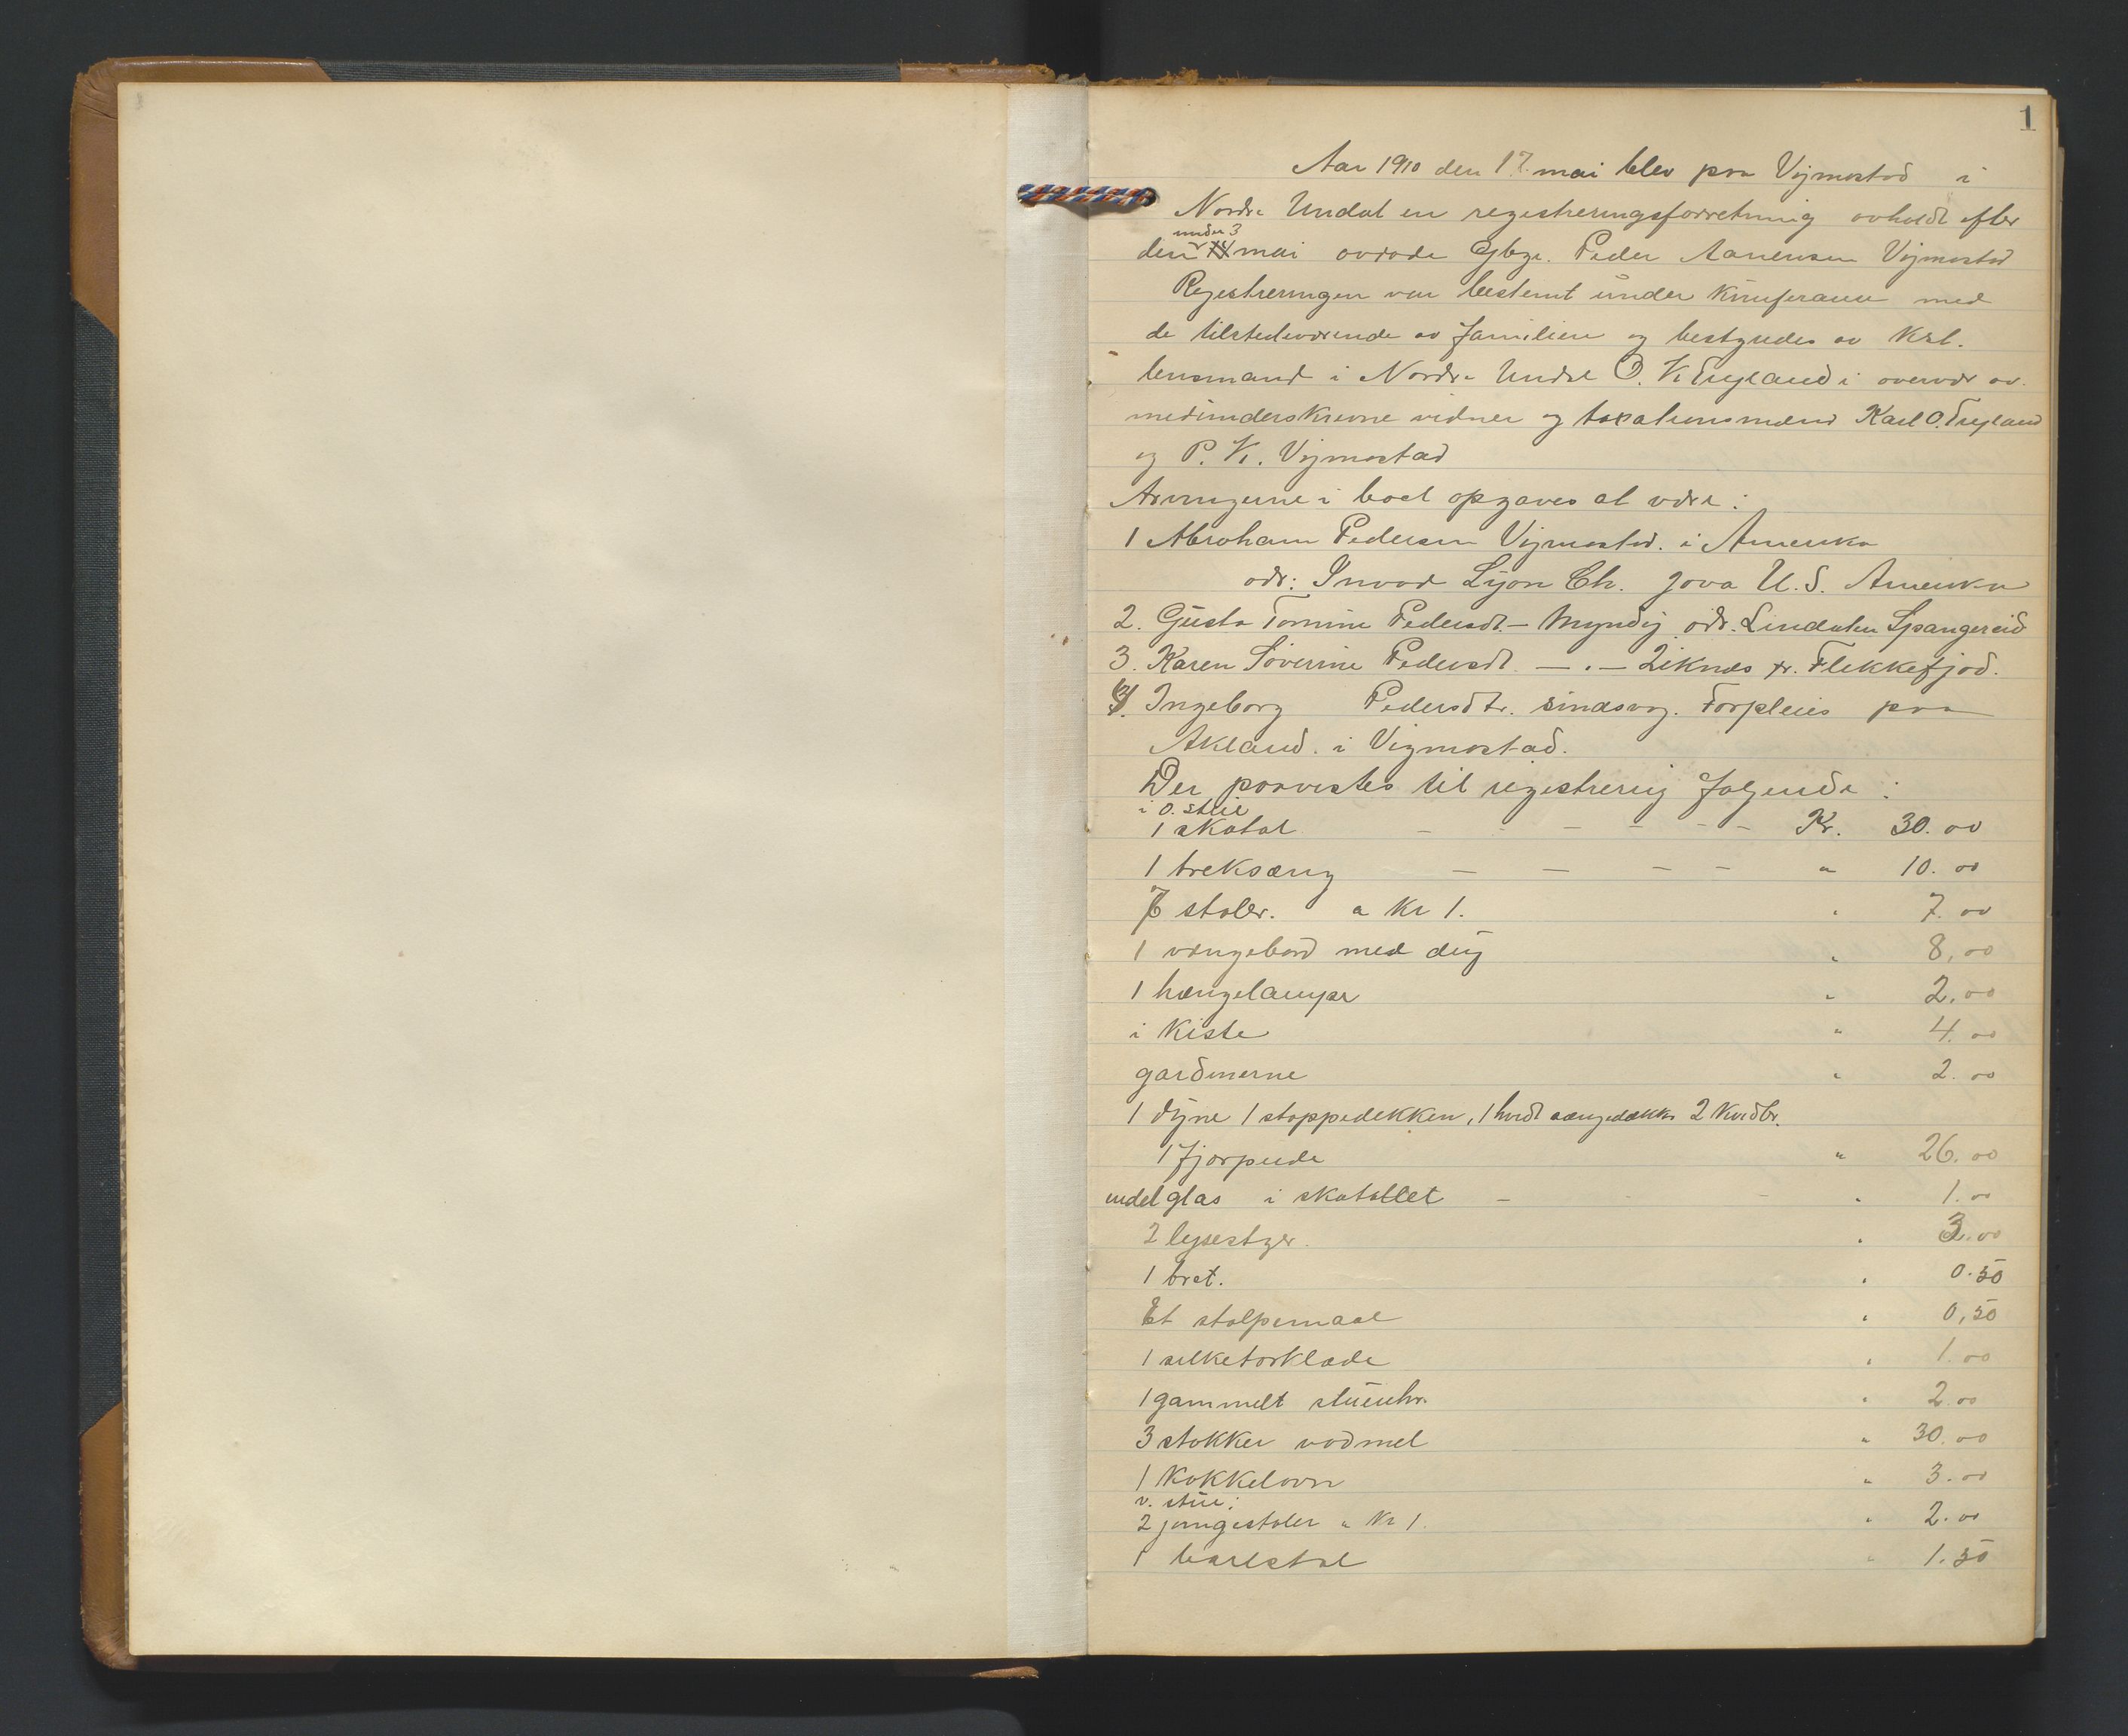 1
Aar 1910 den 17. mai blev paa Vigmostad i
Nordre Undal en registreringsforretning avholdt efter
under 3
den mai avdøde Gbgr. Peder Aanensen Vigmostad
Registreringen var bestemt under Konferanse med
de tilstedeværende av familien og bestyredes av Kst.
lensmand i Nordre Undal O. K. Tregland i overvær av
medunderskrevne vidner og taxationsmænd Karl O. Tregland
og P. K. Vigmostad
Arvingerne i boet opgaves at være:
1 Abraham Pedersen Vigmostad. i Amerika
adr: Inwood Lyon Ch. Jova U.S. Amerika
2. Gusta Tomine Pedersdt. – Myndig adr. Lindalen Spangereid
3. Karen Soverine Pedersdt. — . — Liknes pr. Flekkefjod.
4. Ingeborg Pedersdtr. sindsvag. Forpleies paa
Akland. i Vigmostad.
Der paavistes til registrering følgende:
i ø. stue
1 skatol – – – – – – Kr. 30.00
1 treksæng – – – – " 10.00
7 stoler. a Kr 1. " 7.00
1 vængebord med dug " 8,00
1 hængelampe " 2.00
1 Kiste " 4.00
gardinerne " 2.00
1 dyne 1 stoppedekken, 1 hvidt sængedække 2 Kvidbr.
1 fjærpude " 26.00
endel glas i skatollet – " 1.00
2 lysestger. " 3.00
1 bret. " 0.50
Et stolpemaal " 0,50
1 silketørklæde " 1.00
1 gammelt stueuhr. " 2.00
3 stokker vadmel " 30.00
1 Kakkelovn " 3.00
v. stue:
2 gyngestoler a Kr 1. " 2.00
1 barlstol " 1.50